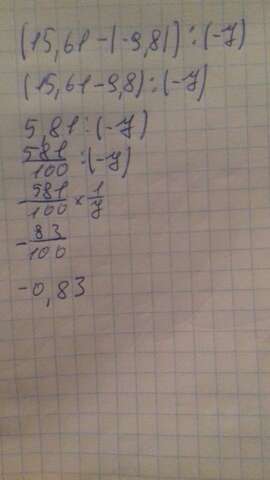 (15,61-|-9,8|):(-7)
(15,61-9,8):(-7)
5,81:(-7)
581/100 :(-7)
-581/100 × 1/7
-83/100
-0,83